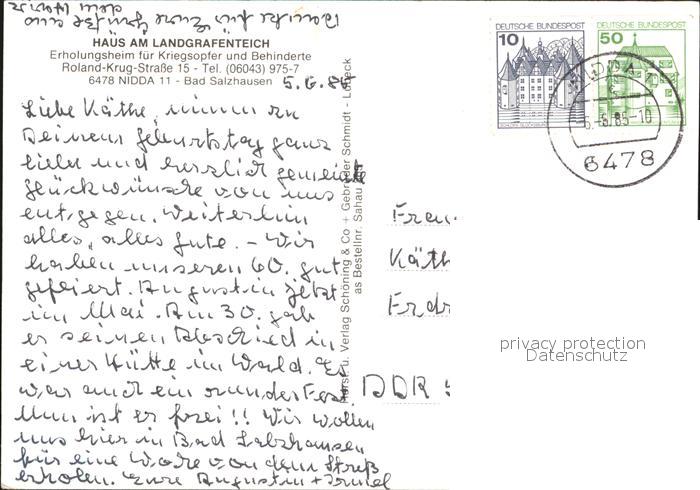 Danke für Eure Grüße aus
dem Harz
HAUS AM LANDGRAFENTEICH
Erholungsheim für Kriegsopfer und Behinderte
Roland-Krug-Straße 15 - Tel. (06043) 975-7
6478 NIDDA 11 - Bad Salzhausen
5.6.85
Liebe Käthe, nimm zu
Deinem Geburtstag ganz
liebe und herzlich gemeinte
Glückwünsche von uns
entgegen. Weiterhin
alles, alles Gute. - Wir
haben unseren 60. gut
gefeiert. Augustin jetzt
im Mai. Am 30. gab
er seinen Abschied in
einer Hütte im Wald. Es
war auch ein rundes Fest.
Nun ist er frei!! Wir wollen
uns hier in Bad Salzhausen
für eine Woche von dem Streß
erholen. Eure Augustin + Irmel
Horst u. Verlag Schöning & Co + Gebrüder Schmidt - Lübeck
as Bestellnr. Sahau
DEUTSCHE BUNDESPOST
10
DEUTSCHE BUNDESPOST
50
NIDDA 1
6.-6.85-10
6478
Frau
Käth
Erdr
DDR
privacy protection
Datenschutz